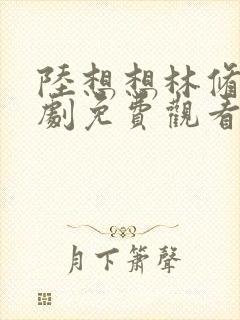 陸想想林脩
劇免費觀看
月下簫聲